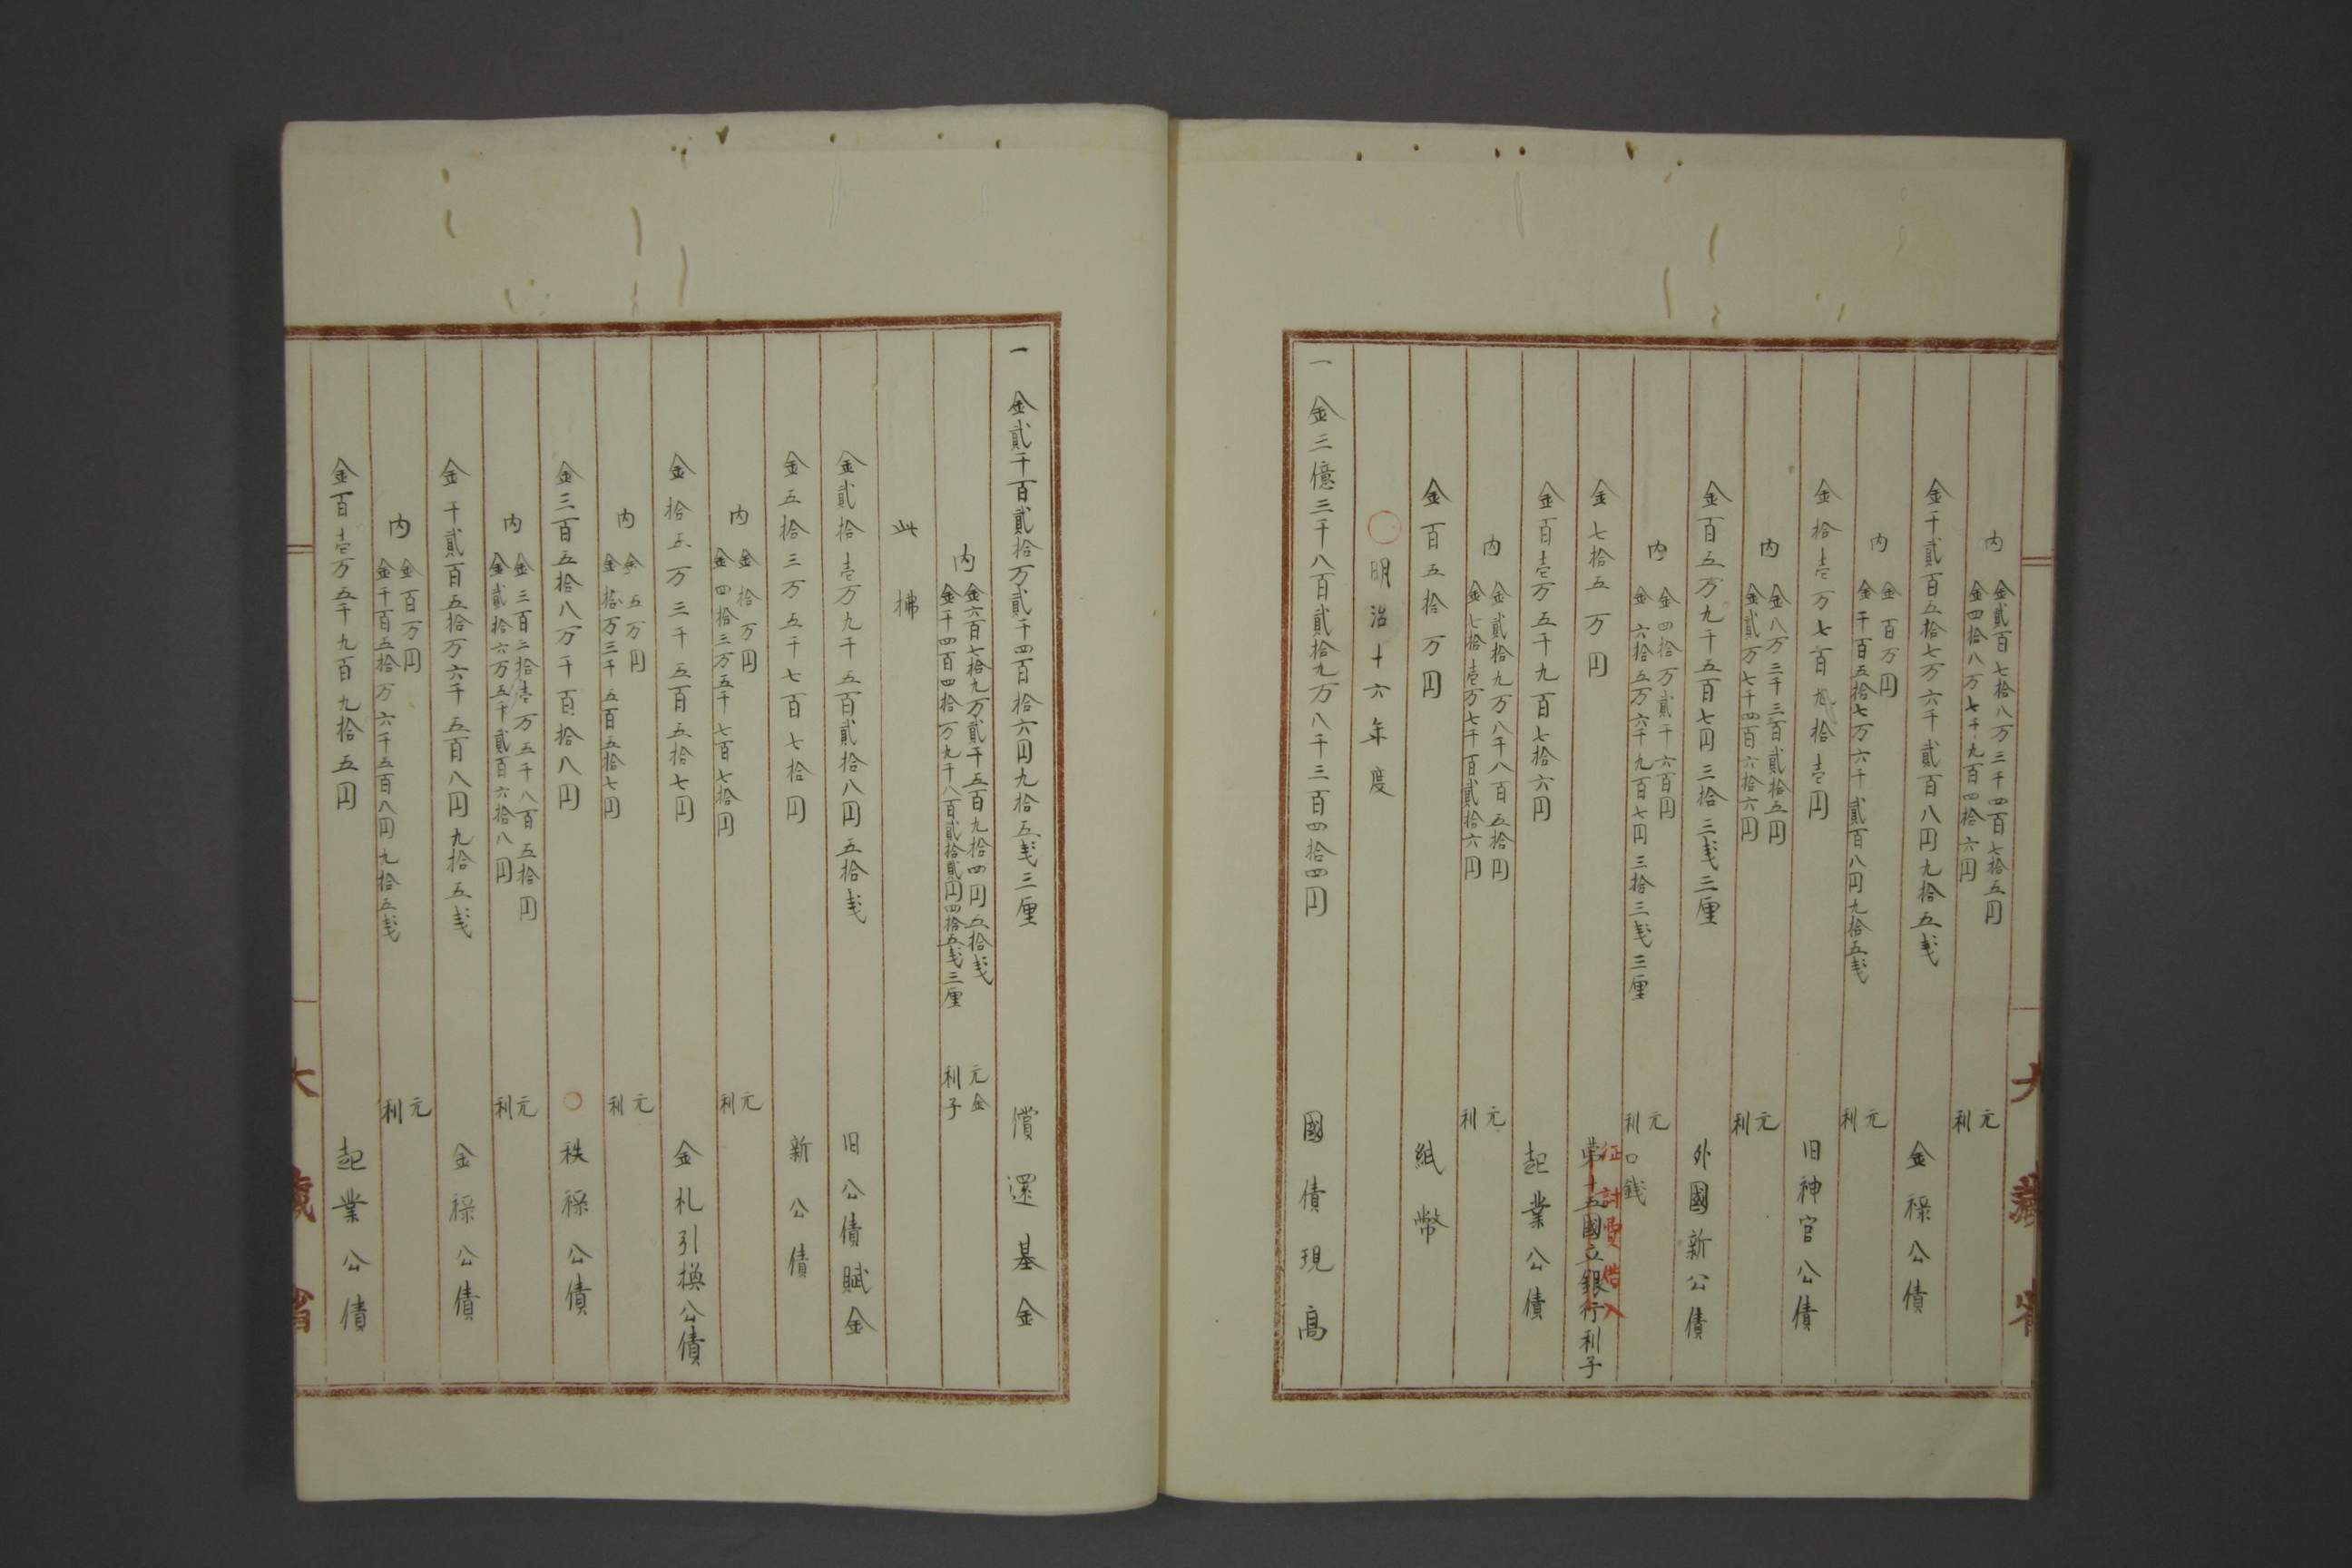 内 金貳百七拾八万三千四百七拾五円 元
金四拾八万七千九百四拾六円 利
金千貳百五拾七万六千貳百八円九拾五戋 金禄公債
内 金百万円 元
金千百五拾七万六千貳百八円九拾五戋 利
金拾壱万七百九拾壱円 旧神官公債
内 金八万三千三百貳拾五円 元
金貳万七千四百六拾六円 利
金百五万九千五百七円三拾三戋三厘 外國新公債
内 金四拾万貳千六百円 元
金六拾五万六千九百七円三拾三戋三厘 利口銭
金七拾五万円 第十五國立銀行利子
征討費借入
金百壱万五千九百七拾六円 起業公債
内 金貳拾九万八千八百五拾円 元
金七拾壱万七千百貳拾六円 利
金百五拾万円 紙幣
〇明治十六年度
一 金三億三千八百貳拾九万八千三百四拾四円 國債現高
大藏省
一 金貳千百貳拾万貳千四百拾六円九拾五戋三厘 償還基金
内 金六百七拾九万貳千五百九拾四円五拾戋 元金
金千四百四拾万九千八百貳拾貳円四拾五戋三厘 利子
此拂
金貳拾壱万九千五百貳拾八円五拾戋 旧公債賦金
金五拾三万五千七百七拾円 新公債
内 金拾万円 元
金四拾三万五千七百七拾円 利
金拾五万三千五百五拾七円 金札引換公債
内 金五万円 元
金拾万三千五百五拾七円 利
金三百五拾八万千百拾八円 〇秩禄公債
内 金三百三拾壱万五千八百五拾円 元
金貳拾六万五千貳百六拾八円 利
金千貳百五拾万六千五百八円九拾五戋 金禄公債
内 金百万円 元
金千百五拾万六千五百八円九拾五戋 利
金百壱万五千九百九拾五円 起業公債
大藏省